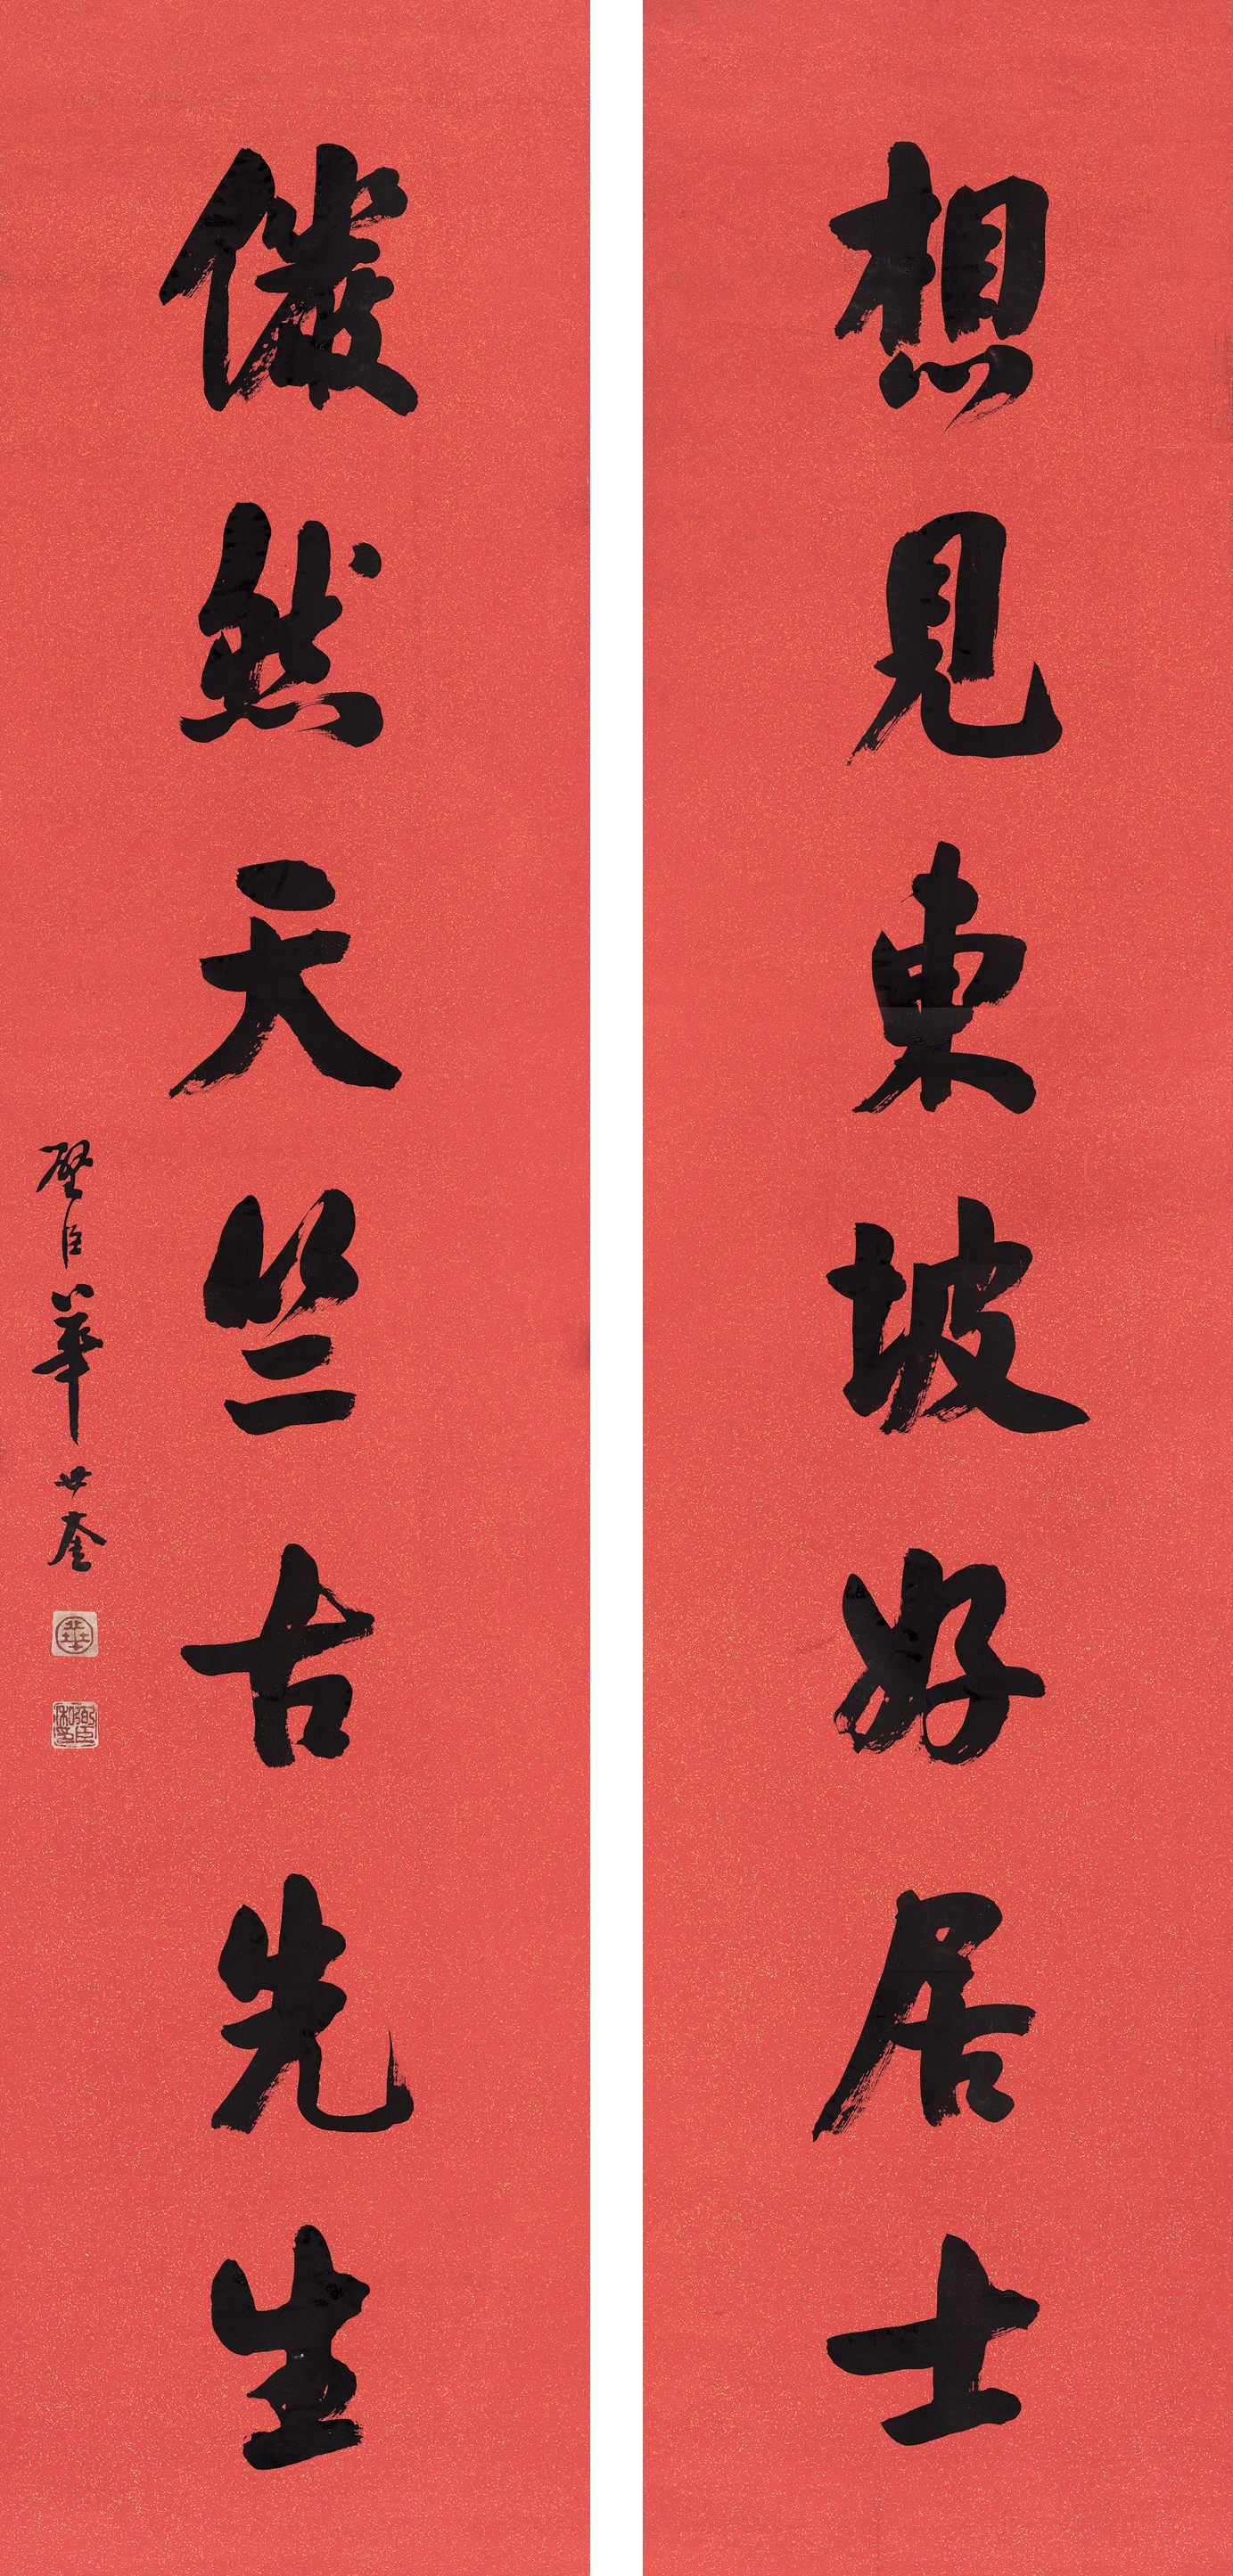 想見東坡好居士
儼然天竺古先生
璧臣華世奎